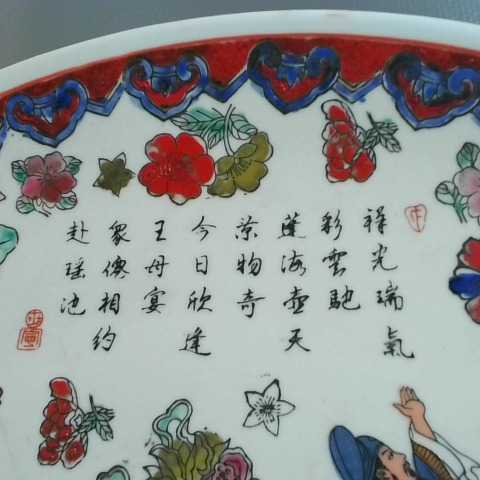 祥光瑞氣
彩雲馳
蓬海壺天
景物奇
今日欣逢
王母宴
眾僊相約
赴瑶池